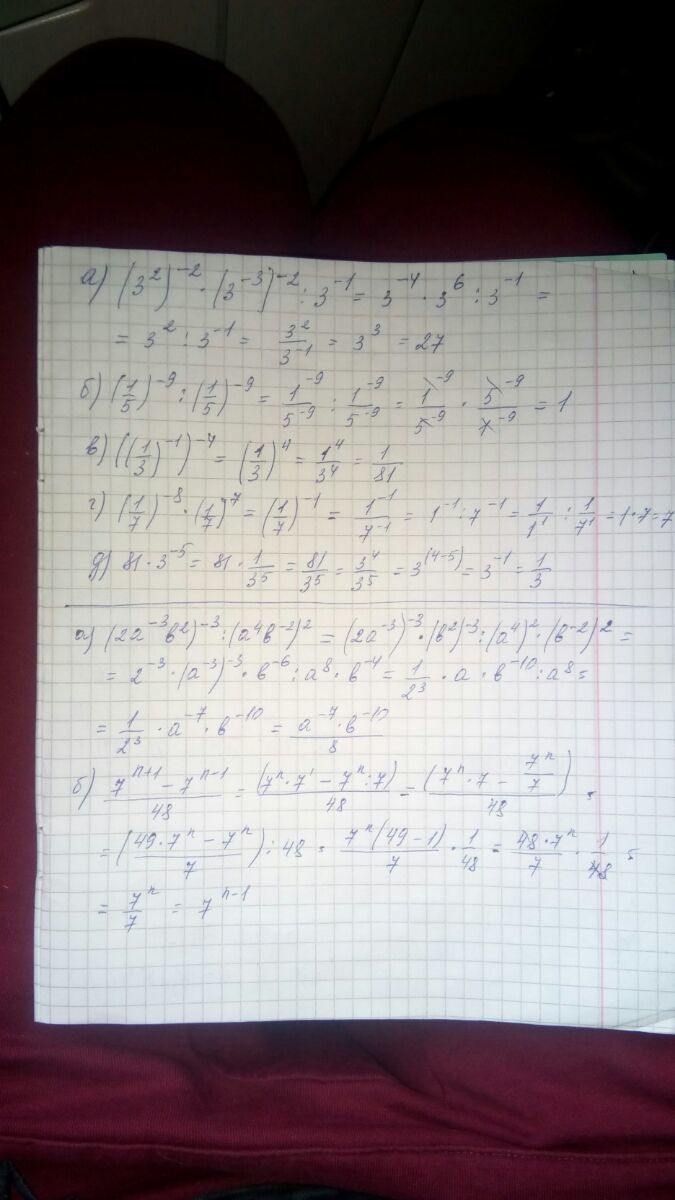 а) (3²)⁻² · (3⁻³)⁻² : 3⁻¹ = 3⁻⁴ · 3⁶ : 3⁻¹ =
= 3² : 3⁻¹ = 3²/3⁻¹ = 3³ = 27
б) (1/5)⁻⁹ : (1/5)⁻⁹ = 1⁻⁹/5⁻⁹ : 1⁻⁹/5⁻⁹ = 1⁻⁹/5⁻⁹ · 5⁻⁹/1⁻⁹ = 1
в) ((1/3)⁻¹)⁻⁴ = (1/3)⁴ = 1⁴/3⁴ = 1/81
г) (1/7)⁻⁸ · (1/7)⁷ = (1/7)⁻¹ = 1⁻¹/7⁻¹ = 1⁻¹ : 7⁻¹ = 1/1¹ : 1/7¹ = 1·7 = 7
д) 81 · 3⁻⁵ = 81 · 1/3⁵ = 81/3⁵ = 3⁴/3⁵ = 3⁽⁴⁻⁵⁾ = 3⁻¹ = 1/3
а) (2a⁻³b²)⁻³ : (a⁴b⁻²)² = (2a⁻³)⁻³ · (b²)⁻³ : (a⁴)² · (b⁻²)² =
= 2⁻³ · (a⁻³)⁻³ · b⁻⁶ : a⁸ · b⁻⁴ = 1/2³ · a · b⁻¹⁰ : a⁸ =
= 1/2³ · a⁻⁷ · b⁻¹⁰ = a⁻⁷ · b⁻¹⁰/8
б) 7ⁿ⁺¹ − 7ⁿ⁻¹/48 = (7ⁿ · 7¹ − 7ⁿ : 7)/48 = (7ⁿ · 7 − 7ⁿ/7)/48 =
= (49 · 7ⁿ − 7ⁿ/7) : 48 = 7ⁿ(49 − 1)/7 · 1/48 = 48 · 7ⁿ/7 · 1/48 =
= 7ⁿ/7 = 7ⁿ⁻¹